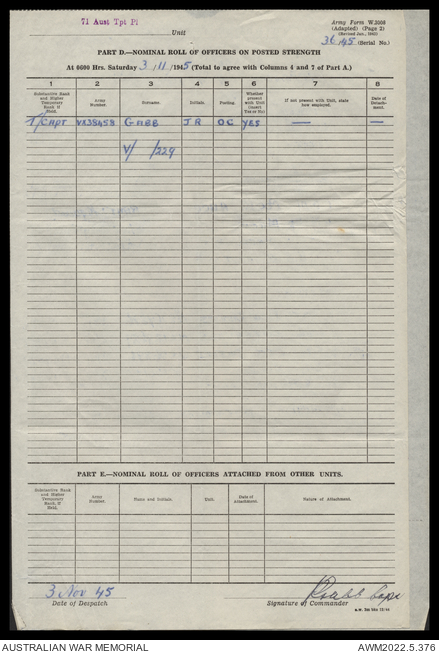 71 Aust Tpt Pl
Unit
Army Form W.3008
(Adapted) (Page 2)
(Revised Jan., 1942)
36/45 (Serial No.)
PART D.—NOMINAL ROLL OF OFFICERS ON POSTED STRENGTH
At 0600 Hrs. Saturday 3/11/1945 (Total to agree with Columns 4 and 7 of Part A.)
1 2 3 4 5 6 7 8
Substantive Rank and Higher Temporary Rank if Held. Army Number. Surname. Initials. Posting. Whether present with Unit (insert Yes or No) If not present with Unit, state how employed. Date of Detachment.
T/Capt VX38458 GABB JR OC YES — —
V/ /229
PART E.—NOMINAL ROLL OF OFFICERS ATTACHED FROM OTHER UNITS.
Substantive Rank and Higher Temporary Rank, if Held. Army Number. Name and Initials. Unit. Date of Attachment. Nature of Attachment.
3 Nov 45
Date of Despatch
JRGabb Capt
Signature of Commander
AUSTRALIAN WAR MEMORIAL
AWM2022.5.376